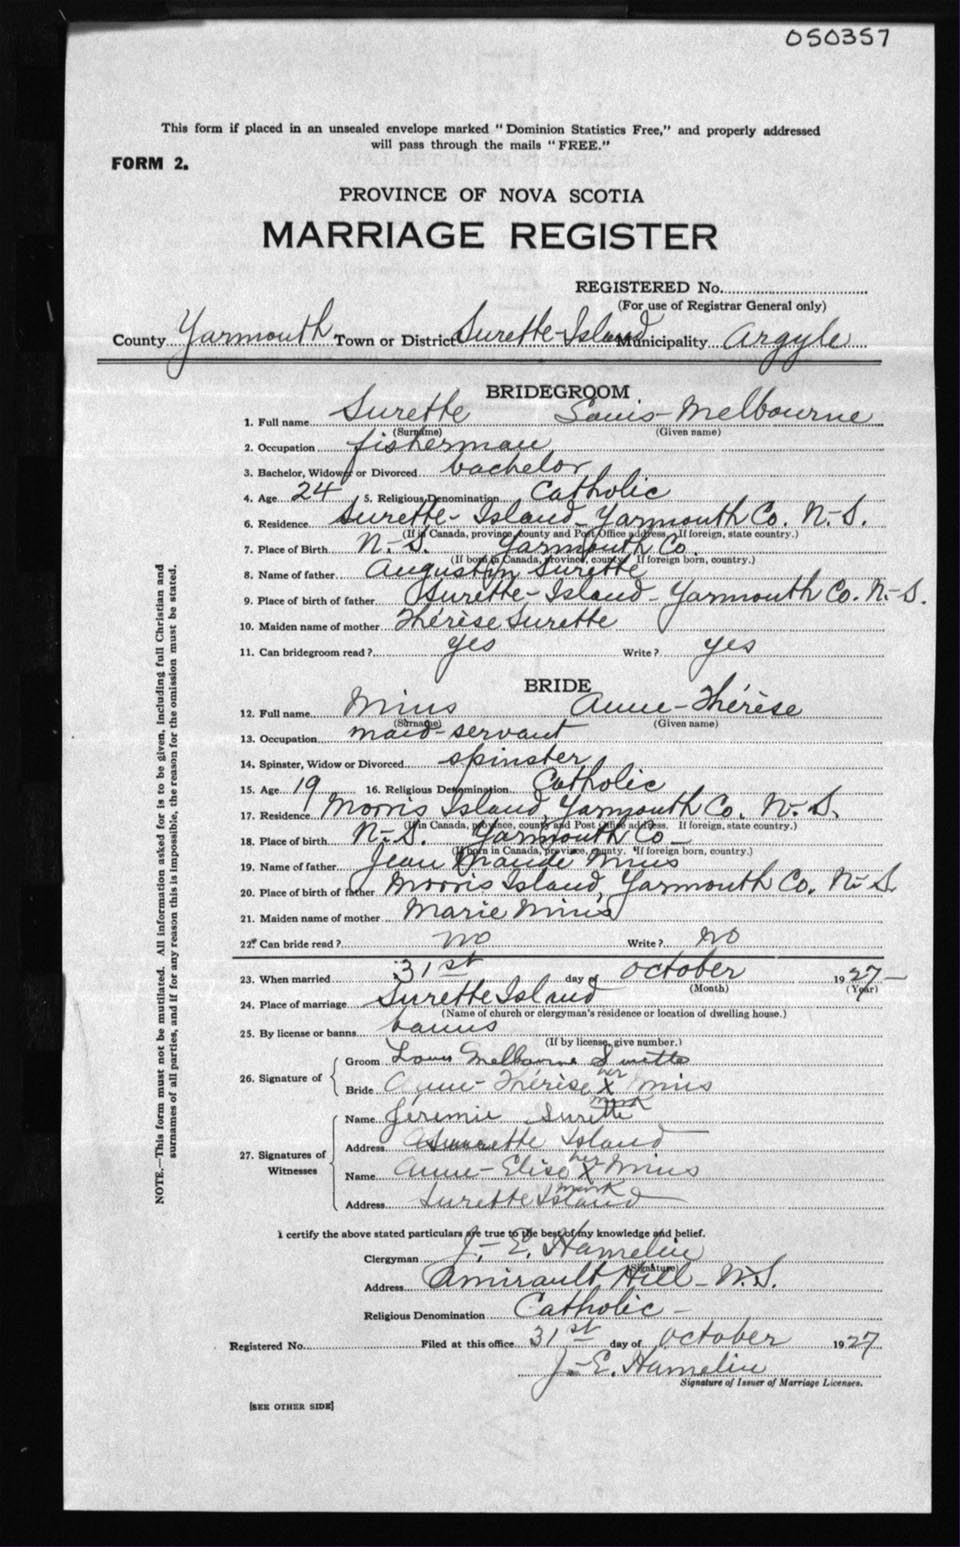 050357
This form if placed in an unsealed envelope marked "Dominion Statistics Free," and properly addressed
will pass through the mails "FREE."
FORM 2.
PROVINCE OF NOVA SCOTIA
MARRIAGE REGISTER
REGISTERED No.
(For use of Registrar General only)
County Yarmouth Town or District Surette-Island Municipality Argyle
BRIDEGROOM
1. Full name Surette Louis-Melbourne
(Surname) (Given name)
2. Occupation fisherman
3. Bachelor, Widower or Divorced bachelor
4. Age 24 5. Religious Denomination Catholic
6. Residence Surette-Island-Yarmouth Co. N.-S.
(If in Canada, province, county and Post Office address. If foreign, state country.)
7. Place of Birth N.-S. Yarmouth Co.
(If born in Canada, province, county. If foreign born, country.)
8. Name of father Augustin Surette
9. Place of birth of father Surette-Island-Yarmouth Co. N.-S.
10. Maiden name of mother Thérèse Surette
11. Can bridegroom read? yes Write? yes
BRIDE
12. Full name Mius Anne-Thérèse
(Surname) (Given name)
13. Occupation maid-servant
14. Spinster, Widow or Divorced spinster
15. Age 19 16. Religious Denomination Catholic
17. Residence Morris Island, Yarmouth Co. N.-S.
(If in Canada, province, county and Post Office address. If foreign, state country.)
18. Place of birth N.-S. Yarmouth Co-
(If born in Canada, province, county. If foreign born, country.)
19. Name of father Jean Mande Mius
20. Place of birth of father Morris Island, Yarmouth Co. N.-S.
21. Maiden name of mother Marie Mius
22. Can bride read? no Write? no
23. When married 31st day of October 1927-
(Month) (Year)
24. Place of marriage Surette Island
(Name of church or clergyman's residence or location of dwelling house.)
25. By license or banns banns
(If by license, give number.)
26. Signature of
Groom Louis Melbourne Surette
Bride Anne-Thérèse her X mark Mius
27. Signatures of Witnesses
Name Jéremie Surette
Address Surette Island
Name Anne-Elise her X mark Mius
Address Surette Island
I certify the above stated particulars are true to the best of my knowledge and belief.
Clergyman J.-E. Hamelin
(Signature)
Address Amirault Hill-N.S.
Religious Denomination Catholic-
Registered No. Filed at this office 31st day of October 1927
J.-E. Hamelin
Signature of Issuer of Marriage Licenses.
[SEE OTHER SIDE]
NOTE.—This form must not be mutilated. All information asked for is to be given, including full Christian and
surnames of all parties, and if for any reason this is impossible, the reason for the omission must be stated.